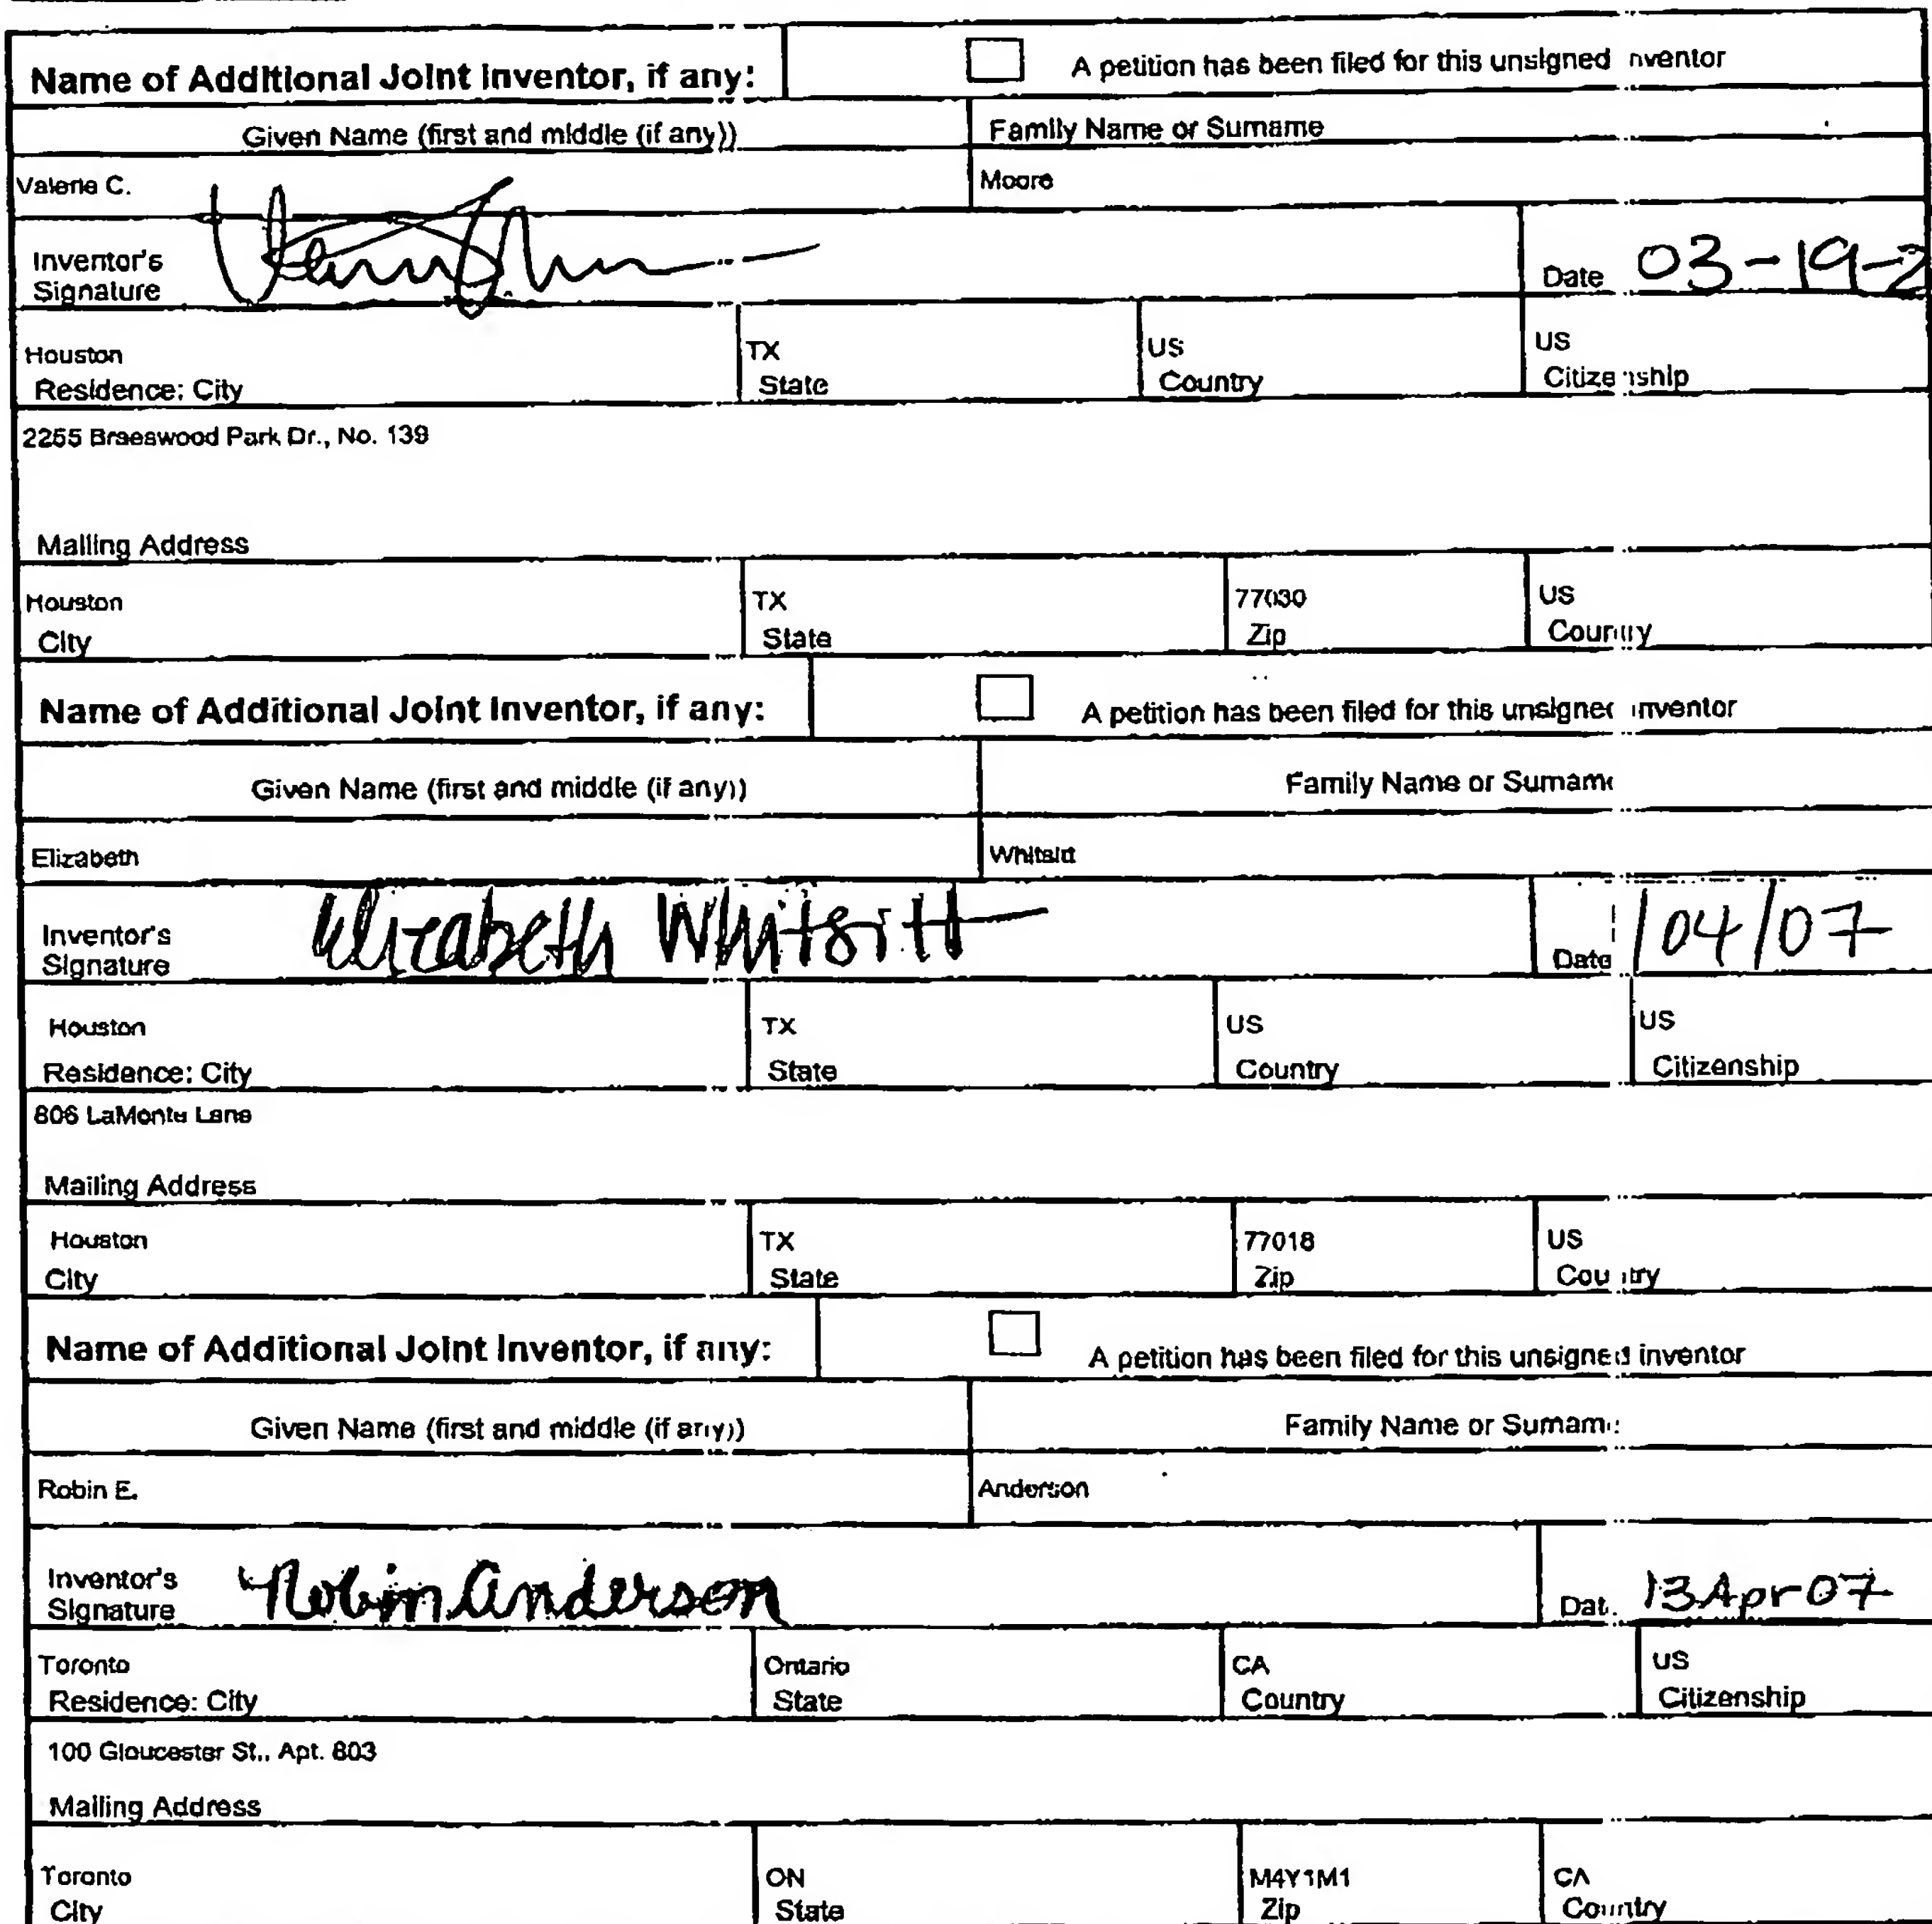 Name of Additional Joint Inventor, if any: A petition has been filed for this unsigned nventor
Given Name (first and middle (if any)) Family Name or Surname
Valerie C. Moore
Inventor's Signature Date 03-19-2
Houston TX US US
Residence: City State Country Citizenship
2255 Braeswood Park Dr., No. 139
Mailing Address
Houston TX 77030 US
City State Zip Country
Name of Additional Joint Inventor, if any: A petition has been filed for this unsigned inventor
Given Name (first and middle (if any)) Family Name or Surname
Elizabeth Whitsitt
Inventor's Signature Elizabeth Whitsitt Date /04/07
Houston TX US US
Residence: City State Country Citizenship
806 LaMonte Lane
Mailing Address
Houston TX 77018 US
City State Zip Country
Name of Additional Joint Inventor, if any: A petition has been filed for this unsigned inventor
Given Name (first and middle (if any)) Family Name or Surname
Robin E. Anderson
Inventor's Signature Robin Anderson Dat. 13 Apr 07
Toronto Ontario CA US
Residence: City State Country Citizenship
100 Gloucester St., Apt. 803
Mailing Address
Toronto ON M4Y1M1 CA
City State Zip Country